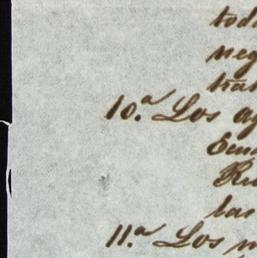 tod
neg
tra
10.ª Los ag
Ru
las
11.ª Los m